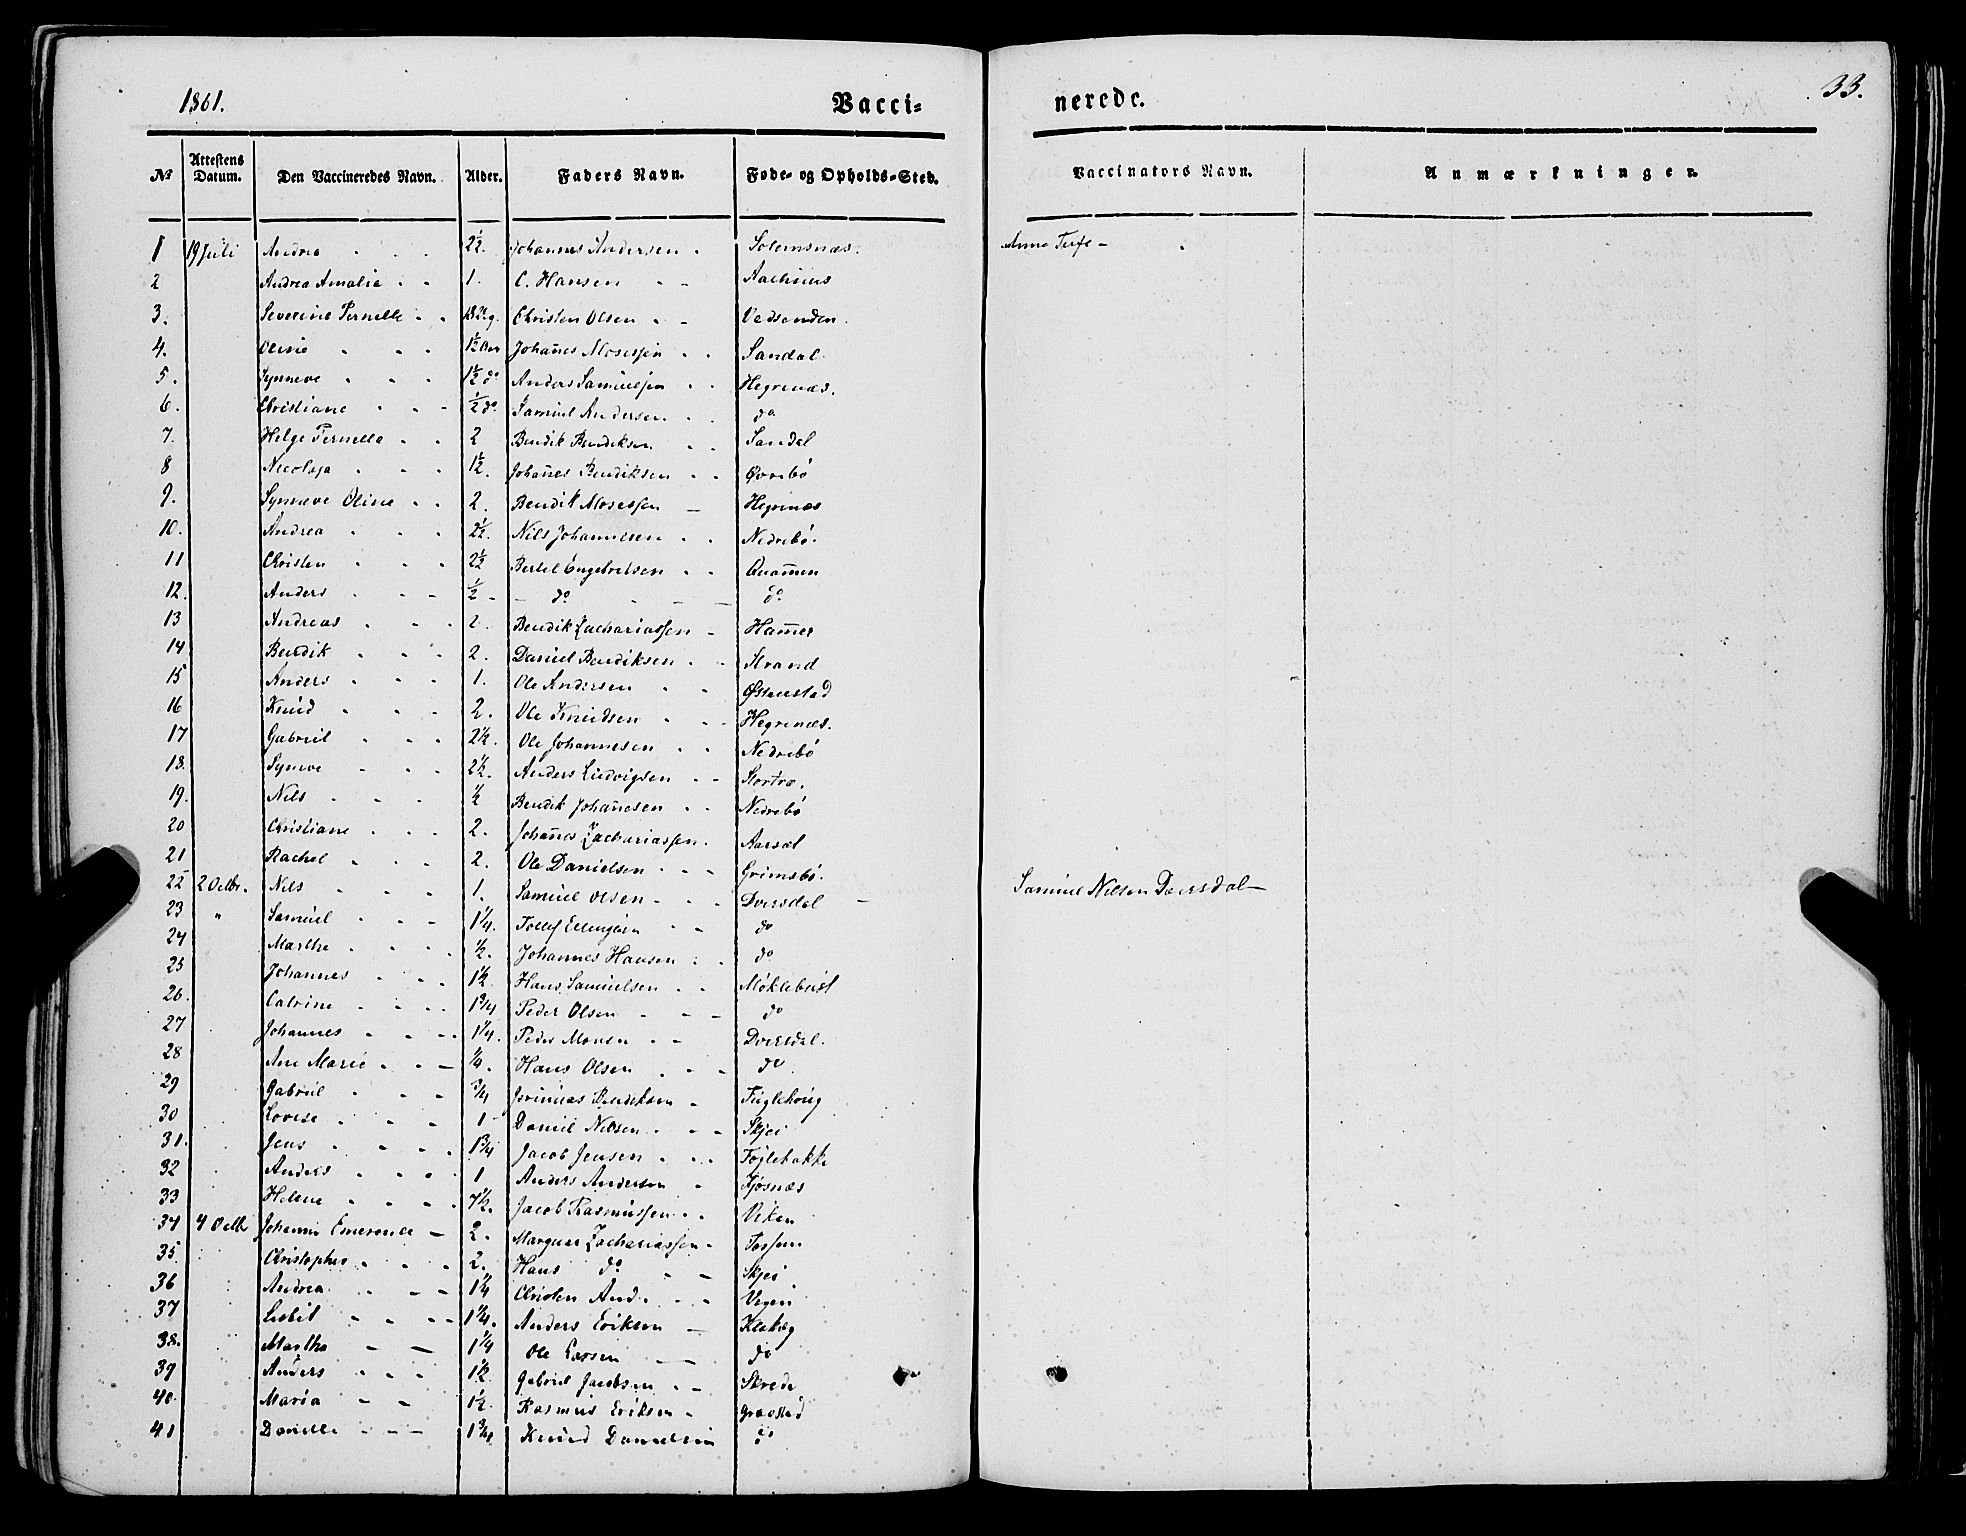 1861. Vacci- nerede. 33.
No Attestens Datum. Den Vaccineredes Navn. Alder. Faders Navn. Føde- og Opholds-Sted. Vaccinators Navn. Anmærkninger.
1 19 Juli Andrea 2½. Johannes Andersen Solemsnæs. Anne
2 Andrea Amalie 1. C. Hansen
3. Severine Pernelle Christen Olsen Vedsenden.
4. Oline 1½ Johañes Mosessen Sandal.
5. Synneve 1½ do Anders Samuelsen Hegrenæs.
6. Christiane ½ do Samuel Andersen do
7. Helge Pernella 2 Bendik Bendiksen Sandal
8 Nicolaja 1½. Johañes Bendiksen Øvrebø
9. Synneve Oline 2. Bendik Mosessen Hegrenæs
10. Andrea 2½. Nils Johannesen Nedrebø.
11 Christen 2½ Bertel Engebretsen Quammen
12. Anders ½ do do
13 Andreas 2 Bendik Zachariassen Hamer
14 Bendik 2. Daniel Bendiksen Strand
15 Anders 1. Ole Andersen Østenstad
16 Knud 2. Ole Knudsen Hegrenæs.
17 Gabriel 2½. Ole Johannesen Nedrebø
18. Syneve 2½. Anders Ludvigsen
19. Nils ½ Bendik Johañesen Nedrebø
20 Christiane 2. Johañes Zachariassen. Aarsæt
21 Rachel 2. Ole Danielsen Grimsbø.
22 2 Octbr. Nils 1. Samuel Olsen Dvergsdal Samuel Nilsen
23 " Samuel 1¼. Tollef Ellingsen do
24 Marthe ½. Johannes Hansen do
25 Johannes 1½ Hans Samuelsen Møklebust
26. Catrine 1¾ Peder Olsen do
27 Johannes 1¼. Peder Monsen
28 Ane Marie ¼. Hans Olsen do
29 Gabriel ¾ Jeremias Bendiksen Fuglehoug
30 Lovise 1 Daniel Nilsen Skjei
31. Jens 1¾ Jacob Jensen Foglebakke
32 Anders 1 Anders Andersen Kjøsnæs
33 Helene 7½. Jacob Rasmussen Viken
34 4 Octbr Johanne Emerence 2. Zachariassen
35. Christopher 2. Hans do Skjei
36 Andrea 1¼ Christen And.
37 Lisbet 1¼. Anders Eriksen Klakeg
38. Marthe 1¼ Ole do
39 Anders 1½ Gabriel Jacobsen Skrede
40. Maria 1½. Rasmus Eriksen
41 Danielle 1¾ Knud Danielsen do